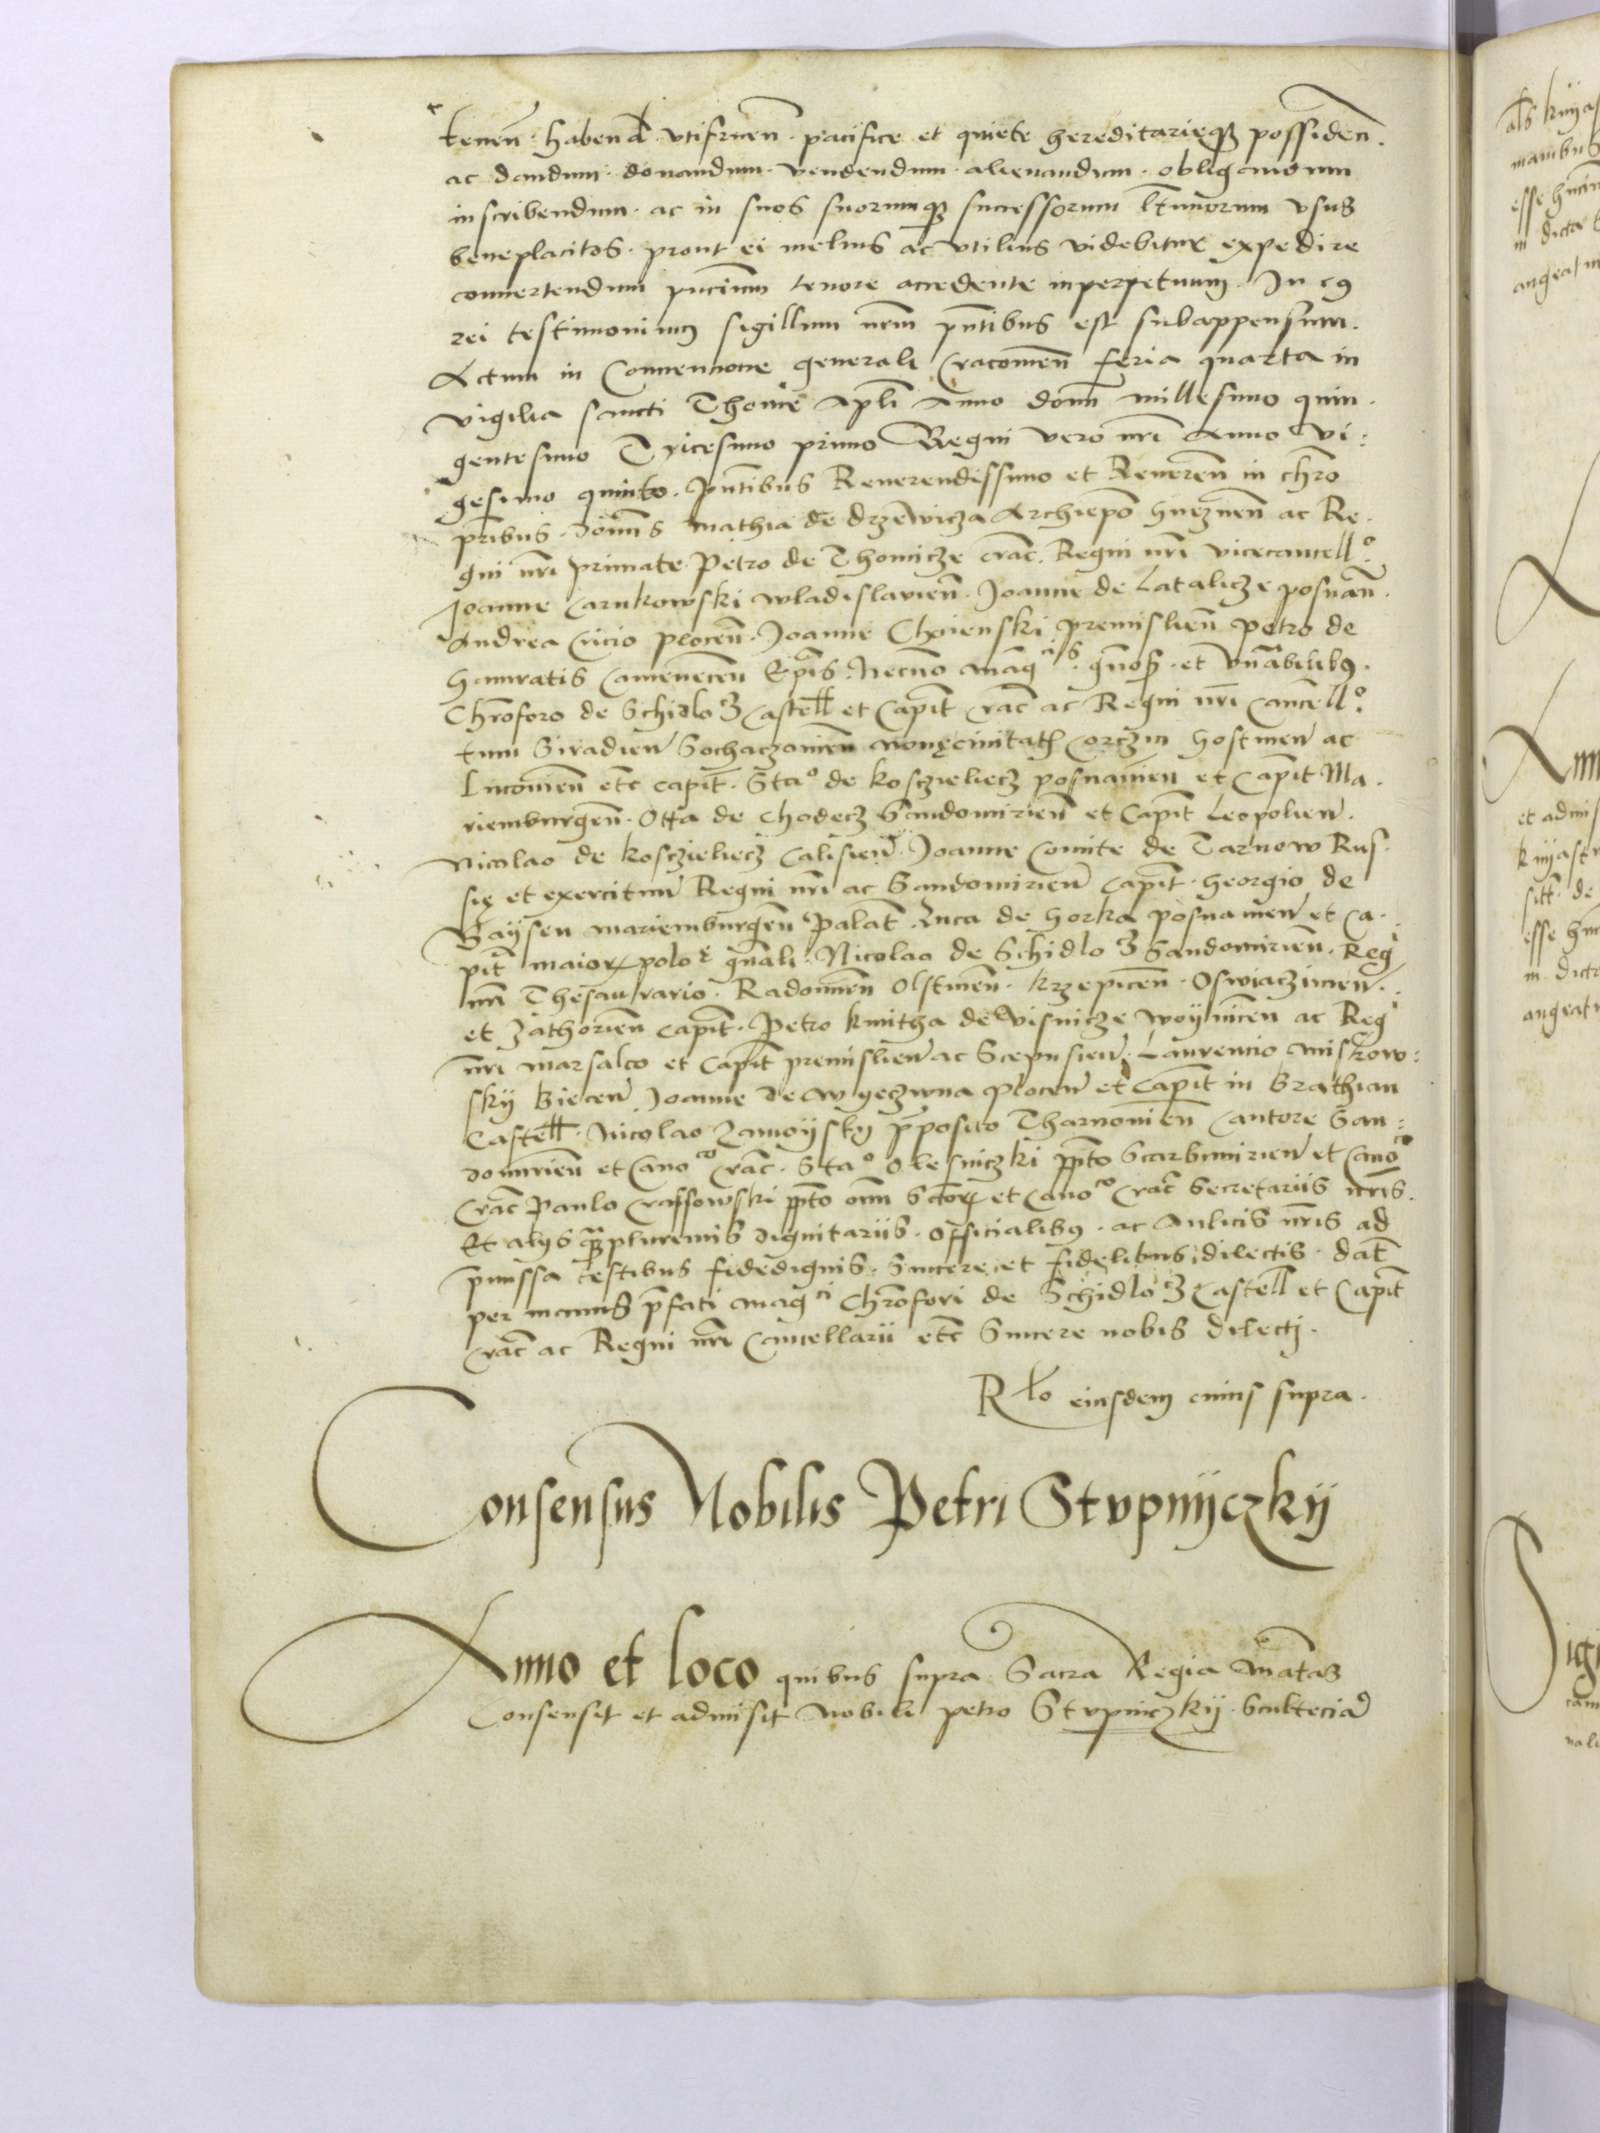 tenen̄ · habend̄ utifruen̄ · pacifice et quiete hereditarieq̢ possiden̄ ·
ac dandum · donandum · vendendum · alienandum · obligandum
inscribendum · ac in suos suorumq̢ successorum l̄timorum usus
beneplacitos · prout ei melius ac utilius videbitur expedire
convertendum pn̄cium tenore accedente inperpetuum · In c9
rei testimonium sigillum nr̄m pn̄tibus est subappensum ·
Actum in Conventione generali Cracovien̄ feria quarta in
vigilia sancti Thome Apl̄i Anno dom̄ millesimo quin ·
gentesimo Tricesimo primo Regni vero nr̄i Anno vi :
gesimo quinto · Pn̄tibus Reverendissimo et Reveren̄ in chr̄o
pr̄ibus · dōnis Mathia de Drzewicza Archiep̄o Gneznen̄ ac Re ·
gni nr̄i primate Petro de Thomicze Crac̄ · Regni nr̄i vicecancell°
Joanne Carnkowski Wladislavien̄ · Joanne de Latalicze posnan̄ ·
Andrea Cricio plocen̄ · Joanne Choienski premislien̄ petro de
Gamratis Camenecen̄ Ep̄is · Necno̅ mag^cis · gn̄osis · et vn̄abilib9 ·
Chr̄oforo de Schidlo3 Castell̄ et Capit̄ Crac̄ ac Regni nr̄i Cancell°
tum Siradien̄ Sochaczovien̄ novęcivitatis Corczin Gostinen̄ ac
Lucovien̄ etc̄ capit̄ · Sta° de koszielecz posnanien̄ et Capit̄ Ma ·
riemburgen̄ · Otta de Chodecz Sandomirien̄ et Capit̄ Leopolien̄ ·
Nicolao de koszielecz Calisien̄ · Joanne Comite de Tarnow Rus ·
się et exercituum Regni nr̄i ac Sandomirien̄ Capit̄ · Georgio de
Baÿsen mariemburgen̄ Palat̄ · Luca de Gorka posnanien̄ et Ca ·
pit̄ maioris polo^e gn̄ali · Nicolao de Schidlo3 Sandomirien̄ · Reg^i
nr̄i Thesaurario · Radomien̄ Olstinen̄ · krzepicen̄ · Oswiaczimen̄ ·
et Zathorien̄ capit̄ · Petro kmitha de Visnicze woynicen̄ ac Reg^i
nr̄i marsalco et Capit̄ premislien̄ ac Scepusien̄ · Laurencio miskow :
skÿ Biecen̄ Joanne de Wyeczwna plocen̄ et Capit̄ in Brathian
Castell̄ · Nicolao Zamoÿskÿ p̄posito Tharnovien̄ Cantore San :
domirien̄ et Cano^co Crac̄ · Sta° Olesniczki pp̄to Scarbimirien̄ et Cano^co
Crac̄ Paulo Crassowski pp̄to om̄ Sctor̄ et Cano^co Crac̄ Secretariis nr̄is ·
Et alÿs q̄pluremis dignitariis · officialib9 · ac Aulicis nr̄is ad
p̄missa testibus fidedignis · Sincere et fidelibus dilectis · dat̄
per manus p̄fati mag^ci Chr̄ofori de Schidlo3 Castell̄ et Capit̄
Crac̄ ac Regni nr̄i Cancellarii etc̄ Sincere nobis dilecti ·
R^lo eiusdem cuius supra ·
Consensus Nobilis Petri Stvpnÿczkÿ
Anno et loco quibus supra Sacra Regia M̄atas
Consensit et admisit nobili petro Stvpniczkÿ · Scultecia̅